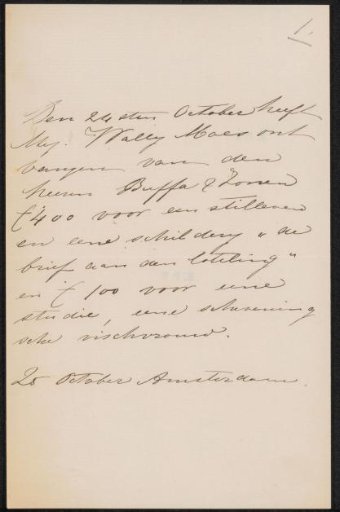 1.
Den 24sten October heeft
Mej. Wally Moes ont
vangen van den
heeren Buffa & Zonen
f 400 voor een stilleven
en eene schildery "de
brief aan den loteling"
en f 100 voor eene
studie, eene schevening
sche vischvrouw.
25 October Amsterdam.